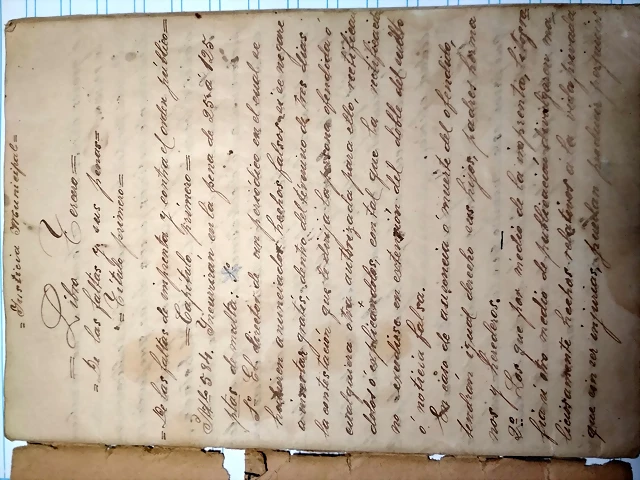 = Justicia Municipal =
= Libro Tercero =
= De las faltas y sus penas =
= Título primero =
= De las faltas de imprenta y contra el orden público =
= Capítulo primero =
Arto 584. Incurrirán en la pena de 25 á 125
ptas de multa:
1o El director de un periódico en el cual se
hubieren anunciado hechos falsos, si se negare
á insertar gratis, dentro del término de tres dias
la contestación que le dirija la persona ofendida o
cualquiera otra autorizada para ello, rectificán
dolos o explicándolos, con tal que la rectificación
no excediese en extensión del doble del suelto
ó noticia falsa.
En caso de ausencia ó muerte del ofendido,
tendrán igual derecho sus hijos, padres, herma
nos y herederos.
2o Los que por medio de la imprenta, litogra
fía ú otro medio de publicación divulgaren ma
liciosamente hechos relativos á la vida privada
que sin ser injurias, puedan producir perjuicios